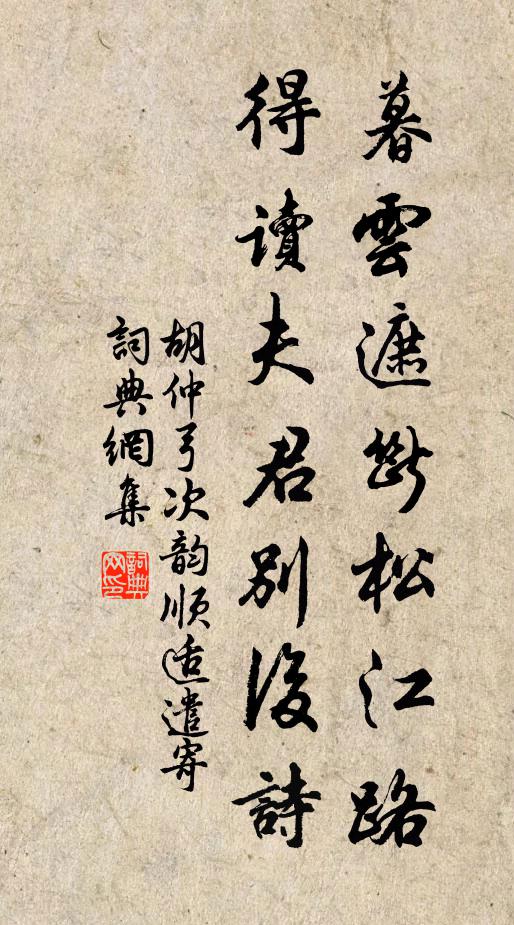 暮雲遮斷松江路
得讀夫君別後詩
胡仲弓次韵順适遣寄
詞典網集
詞典网印